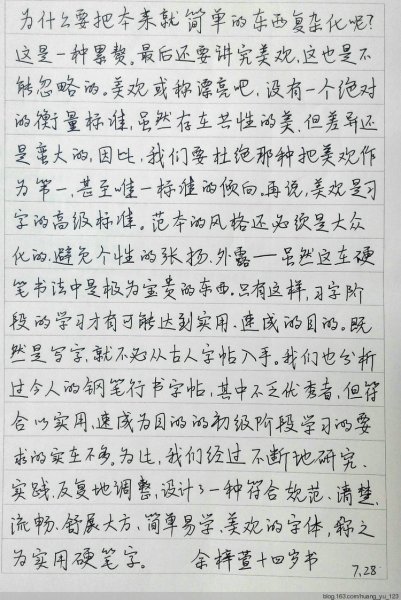 为什么要把本来就简单的东西复杂化呢?
这是一种累赘。最后还要讲究美观,这也是不
能忽略的。美观或称漂亮吧,没有一个绝对
的衡量标准,虽然存在共性的美,但差异还
是蛮大的,因此,我们要杜绝那种把美观作
为第一,甚至唯一标准的倾向。再说,美观是习
字的高级标准。范本的风格还必须是大众
化的,避免个性的张扬、外露——虽然这在硬
笔书法中是极为宝贵的东西。只有这样,习字阶
段的学习才有可能达到实用、速成的目的。既
然是写字,就不必从古人字帖入手。我们也分析
过今人的钢笔行书字帖,其中不乏优秀者,但符
合以实用、速成为目的的初级阶段学习的要
求的实在不多。为此,我们经过不断地研究、
实践,反复地调整,设计了一种符合规范、清楚、
流畅、舒展大方、简单易学、美观的字体,称之
为实用硬笔字。 余梓萱十四岁书
7.28
blog.163.com/huang_yu_123